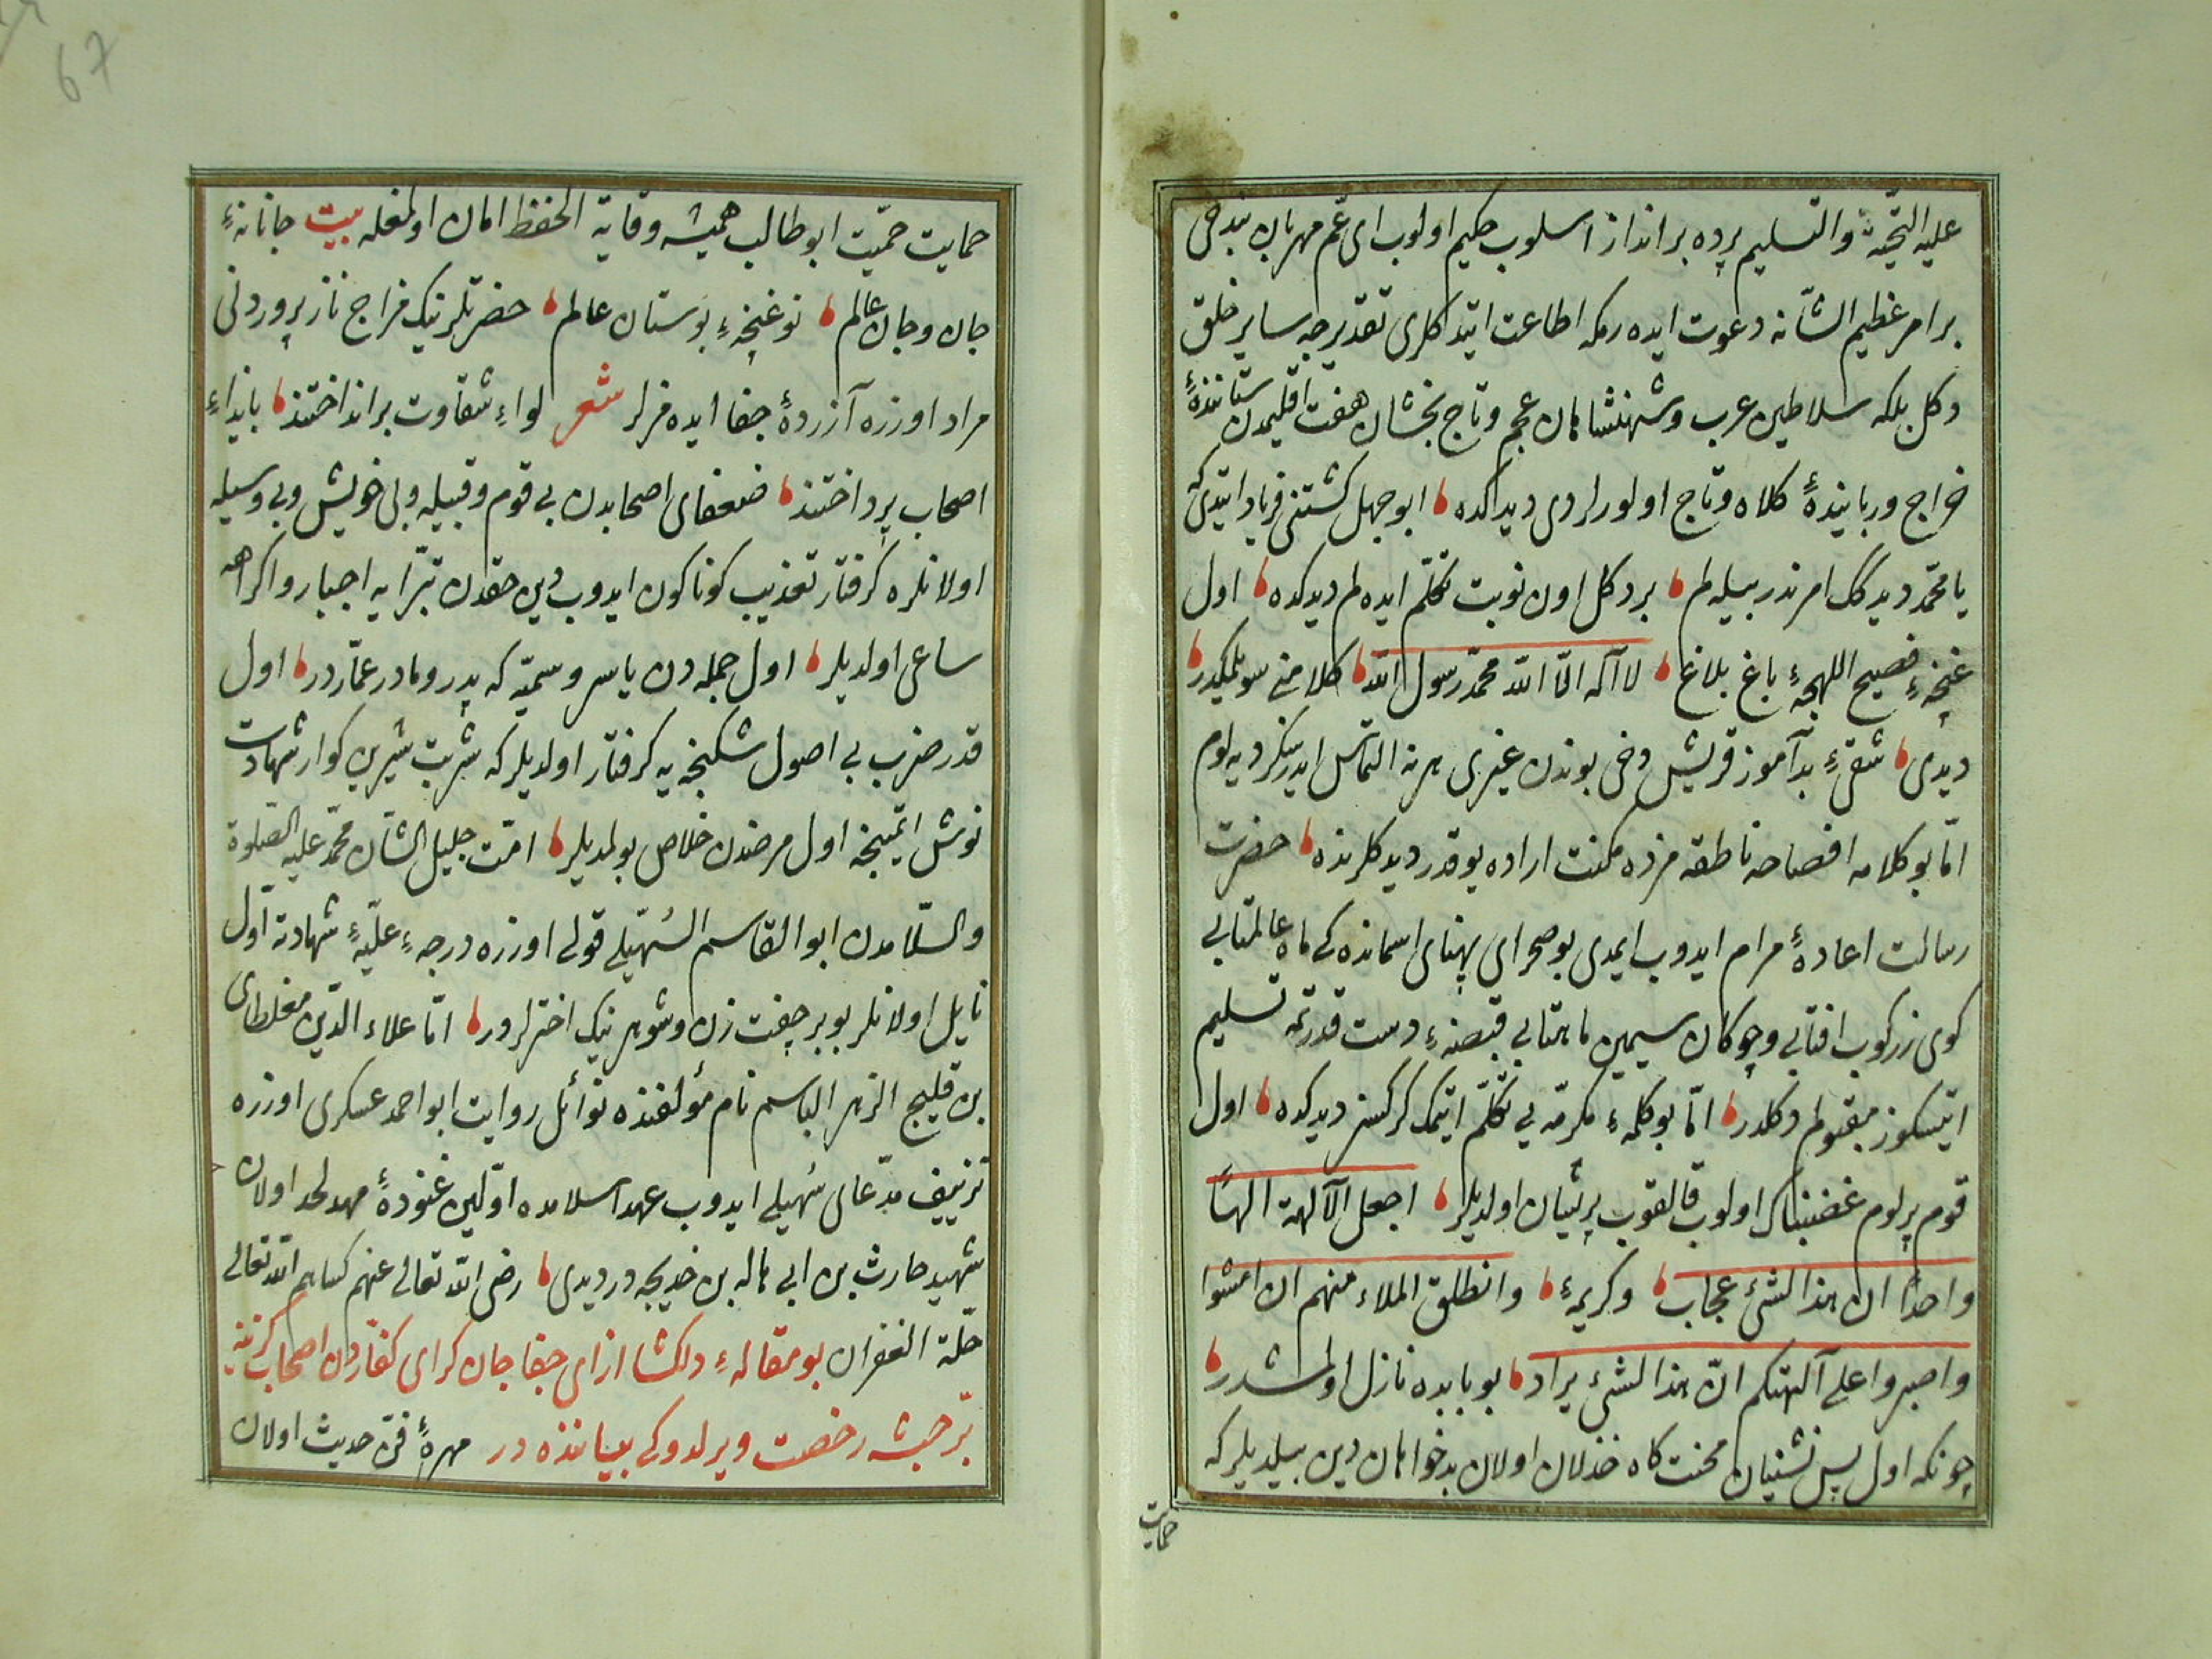 عليه التحيّة والتسليم پرده بر انداز اسلوب حكيم اولوب اى عمّ مهربان بن دخى
بر امر عظيم الشانه دعوت ايده رمكه اطاعت ايتدكلرى تقديرجه ساير خلق
دكل بلكه سلاطين عرب وشهنشاهان عجم وتاج بخشان هفت اقليمدن ستانندهٔ
خراج وربايندهٔ كلاه وتاج اولورلردى ديدكده ابوجهل كشتنى فرياد ايتدى كه
يا محمّد ديدكك امر ندر بيله لم بر دكل اون نوبت تكلّم ايده لم ديدكده اول
غنچهٔ فصيح اللهجهٔ باغ بلاغ لا اله الّا الله محمّد رسول الله كلامنى سويلمكدر
ديدى شقئ بدآموز قريش دخى بوندن غيرى هر نه التماس ايدرسكز ديه لوم
امّا بو كلامه افصاحه ناطقه مزده مكنت اراده يوقدر ديدكلرنده حضرت
رسالت اعادهٔ مرام ايدوب ايمدى بو صحراى پهناى اسمانده كى ماه عالمتابى
كوى زركوب افتابى وچوكان سيمين ماهتابى قبضهٔ دست قدرتمه تسليم
ايتسكوز مقبولم دكلدر امّا بو كلمهٔ مكرمه يى تكلّم ايتمك كركسز ديدكده اول
قوم پرلوم غضبناك اولوب قالقوب پريشان اولديلر اجعل الآلهة الهًا
واحدًا ان هذا لشئ عجاب وكريمهٔ وانطلق الملاء منهم ان امشوا
واصبروا على آلهتكم انّ هذا لشئ يراد بو بابده نازل اولمشدر
چونكه اول پس نشينان محنت كاه خذلان اولان بدخواهان دين بيلديلر كه
حمايت
حمايت حميّت ابو طالب هميشه وقاية الحفظ امان اولمغله بيت جانانهٔ
جان وجان عالم نو غنچهٔ بوستان عالم حضرتلرينك مزاج ناز پروردنى
مراد اوزره آزردهٔ جفا ايده مزلر شعر لواء شقاوت بر انداختند بايذاء
اصحاب پرداختند ضعفاى اصحابدن بى قوم وقبيله وبى خويش وبى وسيله
اولانلره گرفتار تعذيب كوناكون ايدوب دين حقدن تبرّايه اجبار واكراهه
ساعى اولديلر اول جمله دن ياسر وسميّه كه پدر ومادر عمّاردر اول
قدر ضرب بى اصول شكنجه يه گرفتار اولديلر كه شربت شيرين كوار شهادت
نوش ايتمينجه اول مرضدن خلاص بولمديلر امّت جليل الشان محمّد عليه الصّلوة
والسّلامدن ابو القاسم السُهيلى قولى اوزره درجهٔ عليّهٔ شهادته اوّل
نايل اولانلر بو بر چفت زن وشوهر نيك اخترلردر امّا علاء الدّين مغلطاى
بن قليج الزهر الباسم نام مؤلفنده نوائل روايت ابو احمد عسكرى اوزره
تزييف مدّعاى سُهيلى ايدوب عهد اسلامده اوّلين غنودهٔ مهد لحد اولان
شهيد حارث بن ابى هاله بن خديجه در ديدى رضى الله تعالى عنهم كساهم الله تعالى
حلّة الغفران بو مقالهٔ دلكشا ازاى جفا جان كراى كفّاردن اصحاب كزينه
برّ حبشه رخصت ويرلدوكى بياننده در مهرهٔ فنّ حديث اولان
67